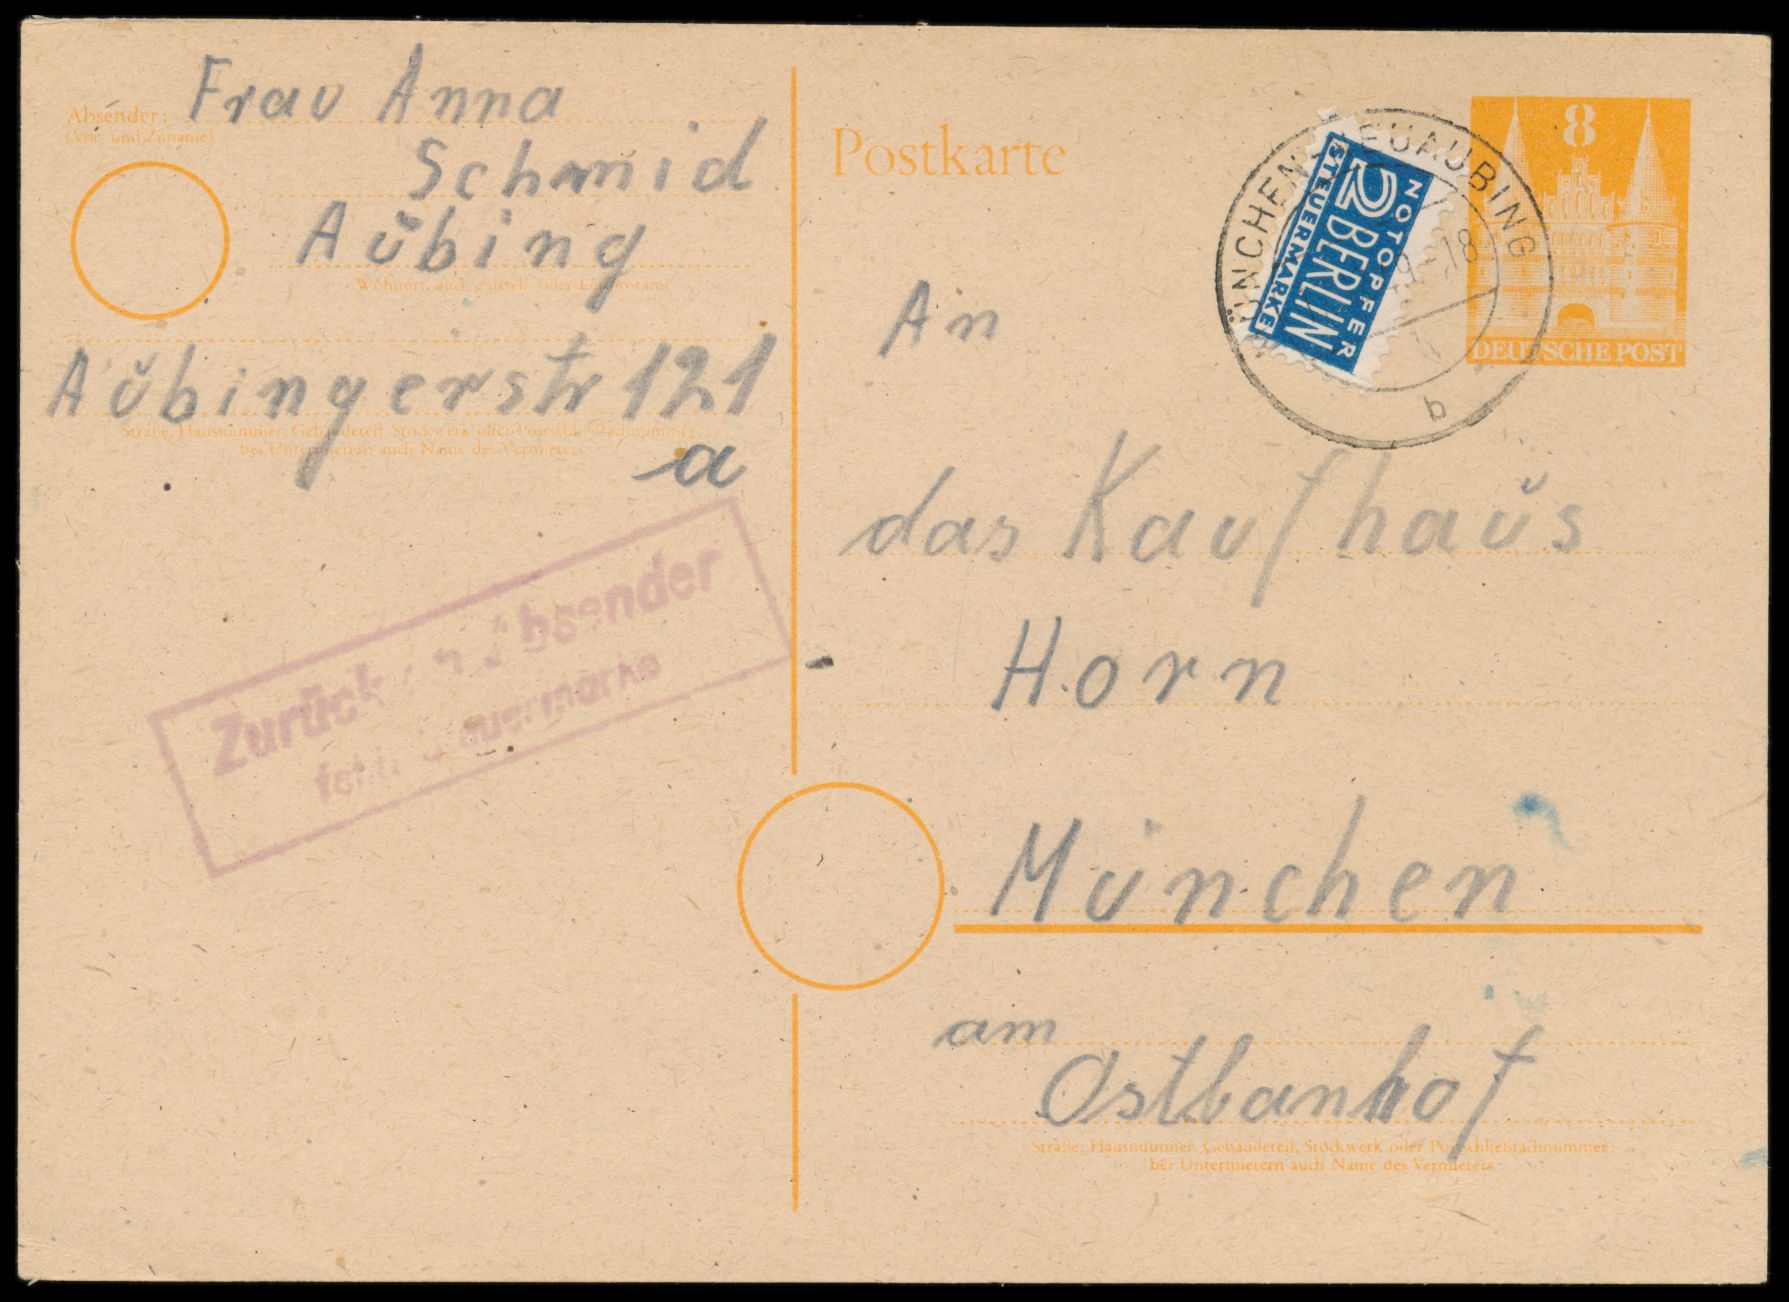 Absender: Frau Anna
(Vor- und Zuname)
Schmid
Aŭbing
Wohnort, auch Zustell- oder Leitpostamt
Aŭbingerstr 121
Straße, Hausnummer, Gebäudeteil, Stockwerk oder Postschließfachnummer,
bei Untermietern auch Name des Vermieters
a
Zurück an Absender
fehlt Steuermarke
Postkarte
8
DEUTSCHE POST
NOTOPFER
2 BERLIN
STEUERMARKE
MÜNCHEN-NEUAUBING
-18
b
An
das Kaufhaŭs
Horn
München
am
Ostbanhof
Straße, Hausnummer, Gebäudeteil, Stockwerk oder Postschließfachnummer,
bei Untermietern auch Name des Vermieters